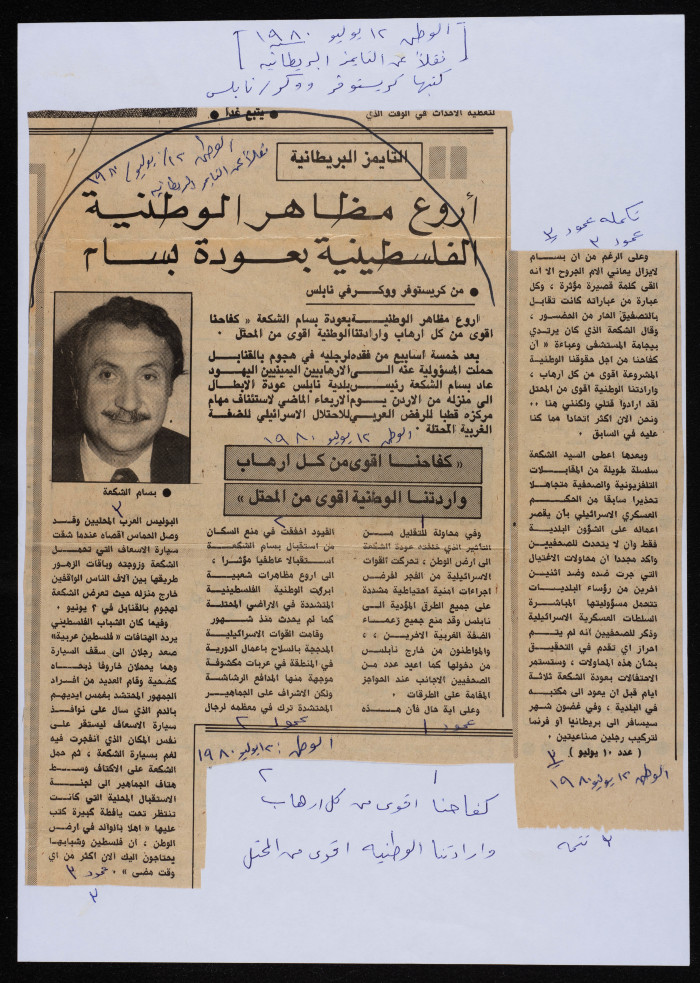 الوطن ١٢ يوليو ١٩٨٠
نقلاً عن التايمز البريطانيه
كتبها كريستوفر ووكر/نابلس
لتغطية الاحداث في الوقت الذي
● يتبع غدا ●
الوطن ١٢/يوليو/١٩٨٠
نقلاً عن التايمز البريطانيه
التايمز البريطانية
أروع مظاهر الوطنية
الفلسطينية بعودة بسام
● من كريستوفر ووكر في نابلس
اروع مظاهر الوطنية بعودة بسام الشكعة « كفاحنا
اقوى من كل ارهاب وارادتنا الوطنية اقوى من المحتل ٠
بعد خمسة اسابيع من فقده لرجليه في هجوم بالقنابل
حملت المسؤولية عنه الى الارهابيين اليمينيين اليهود
عاد بسام الشكعة رئيس بلدية نابلس عودة الابطال
الى منزله من الاردن يوم الاربعاء الماضي لاستئناف مهام
مركزه قطبا للرفض العربي للاحتلال الاسرائيلي للضفة
الغربية المحتلة ٠
الوطن ١٢ يوليو ١٩٨٠
« كفاحنا اقوى من كل ارهاب
واردتنا الوطنية اقوى من المحتل »
● بسام الشكعة
١
وفي محاولة للتقليل من
التأثير الذي خلفته عودة الشكعة
الى ارض الوطن ، تحركت القوات
الاسرائيلية من الفجر لفرض
اجراءات امنية احتياطية مشددة
على جميع الطرق المؤدية الى
نابلس وقد منع جميع زعماء
الضفة الغربية الاخرين ، ،
والمواطنون من خارج نابلس
من دخولها كما اعيد عدد من
الصحفيين الاجانب عند الحواجز
المقامة على الطرقات ٠
وعلى اية حال فأن هذه
عمود ١
٢
القيود اخفقت في منع السكان
من استقبال بسام الشكعة
استقبالا عاطفيا مؤثرا ،
الى اروع مظاهرات شعبية
ابرزت الوطنية الفلسطينية
المتشددة في الاراضي المحتلة
كما لم يحدث منذ شهور
وقامت القوات الاسرائيلية
المدججة بالسلاح باعمال الدورية
في المنطقة في عربات مكشوفة
موجهة منها المدافع الرشاشة
ولكن الاشراف على الجماهير
المحتشدة ترك في معظمه لرجال
عمود ٢
الوطن : ١٢ يوليو ١٩٨٠
٣
البوليس العرب المحليين وقد
وصل الحماس اقصاه عندما شقت
سيارة الاسعاف التي تحمل
الشكعة وزوجته وباقات الزهور
طريقها بين آلاف الناس الواقفين
خارج منزله حيث تعرض الشكعة
لهجوم بالقنابل في ٢ يونيو ٠
وفيما كان الشباب الفلسطيني
يردد الهتافات « فلسطين عربية»
صعد رجلان الى سقف السيارة
وهما يحملان خاروفا ذبحاه
كضحية وقام العديد من افراد
الجمهور المحتشد بغمس ايديهم
بالدم الذي سال على نوافذ
سيارة الاسعاف ليستقر على
نفس المكان الذي انفجرت فيه
لغم بسيارة الشكعة ، ثم حمل
الشكعة على الاكتاف وسط
هتاف الجماهير الى لجنة
الاستقبال المحلية التي كانت
تنتظر تحت يافطة كبيرة كتب
عليها « اهلا بالوالد في ارض
الوطن ، ان فلسطين وشبابها
يحتاجون اليك الان اكثر من اي
وقت مضى » ٠ عمود ٣
٣
تكمله عمود ٣
عمود ٣
وعلى الرغم من ان بسام
لايزال يعاني الام الجروح الا انه
القى كلمة قصيرة مؤثرة ، وكل
عبارة من عباراته كانت تقابل
بالتصفيق الحار من الحضور ،
وقال الشكعة الذي كان يرتدي
بيجامة المستشفى وعباءة « ان
كفاحنا من اجل حقوقنا الوطنية
المشروعة اقوى من كل ارهاب ،
وارادتنا الوطنية اقوى من المحتل
لقد ارادوا قتلي ولكنني هنا ٠٠
ونحن الان اكثر اتحادا مما كنا
عليه في السابق ٠
وبعدها اعطى السيد الشكعة
سلسلة طويلة من المقابلات
التلفزيونية والصحفية متجاهلا
تحذيرا سابقا من الحكم
العسكري الاسرائيلي بأن يقصر
اعماله على الشؤون البلدية
فقط وان لا يتحدث للصحفيين
واكد مجددا ان محاولات الاغتيال
التي جرت ضده وضد اثنين
آخرين من رؤساء البلديات
تتحمل مسؤوليتها المباشرة
السلطات العسكرية الاسرائيلية
وذكر للصحفيين انه لم يتم
احراز اي تقدم في التحقيق
بشأن هذه المحاولات ، وستستمر
الاحتفالات بعودة الشكعة ثلاثة
ايام قبل ان يعود الى مكتبه
في البلدية ، وفي غضون شهر
سيسافر الى بريطانيا او فرنسا
لتركيب رجلين صناعيتين ٠
( عدد ١٠ يوليو ) ٣
الوطن ١٢ يوليو ١٩٨٠
٣ تتمه
١ ٢
كفاحنا اقوى من كل ارهاب
وارادتنا الوطنيه اقوى من المحتل